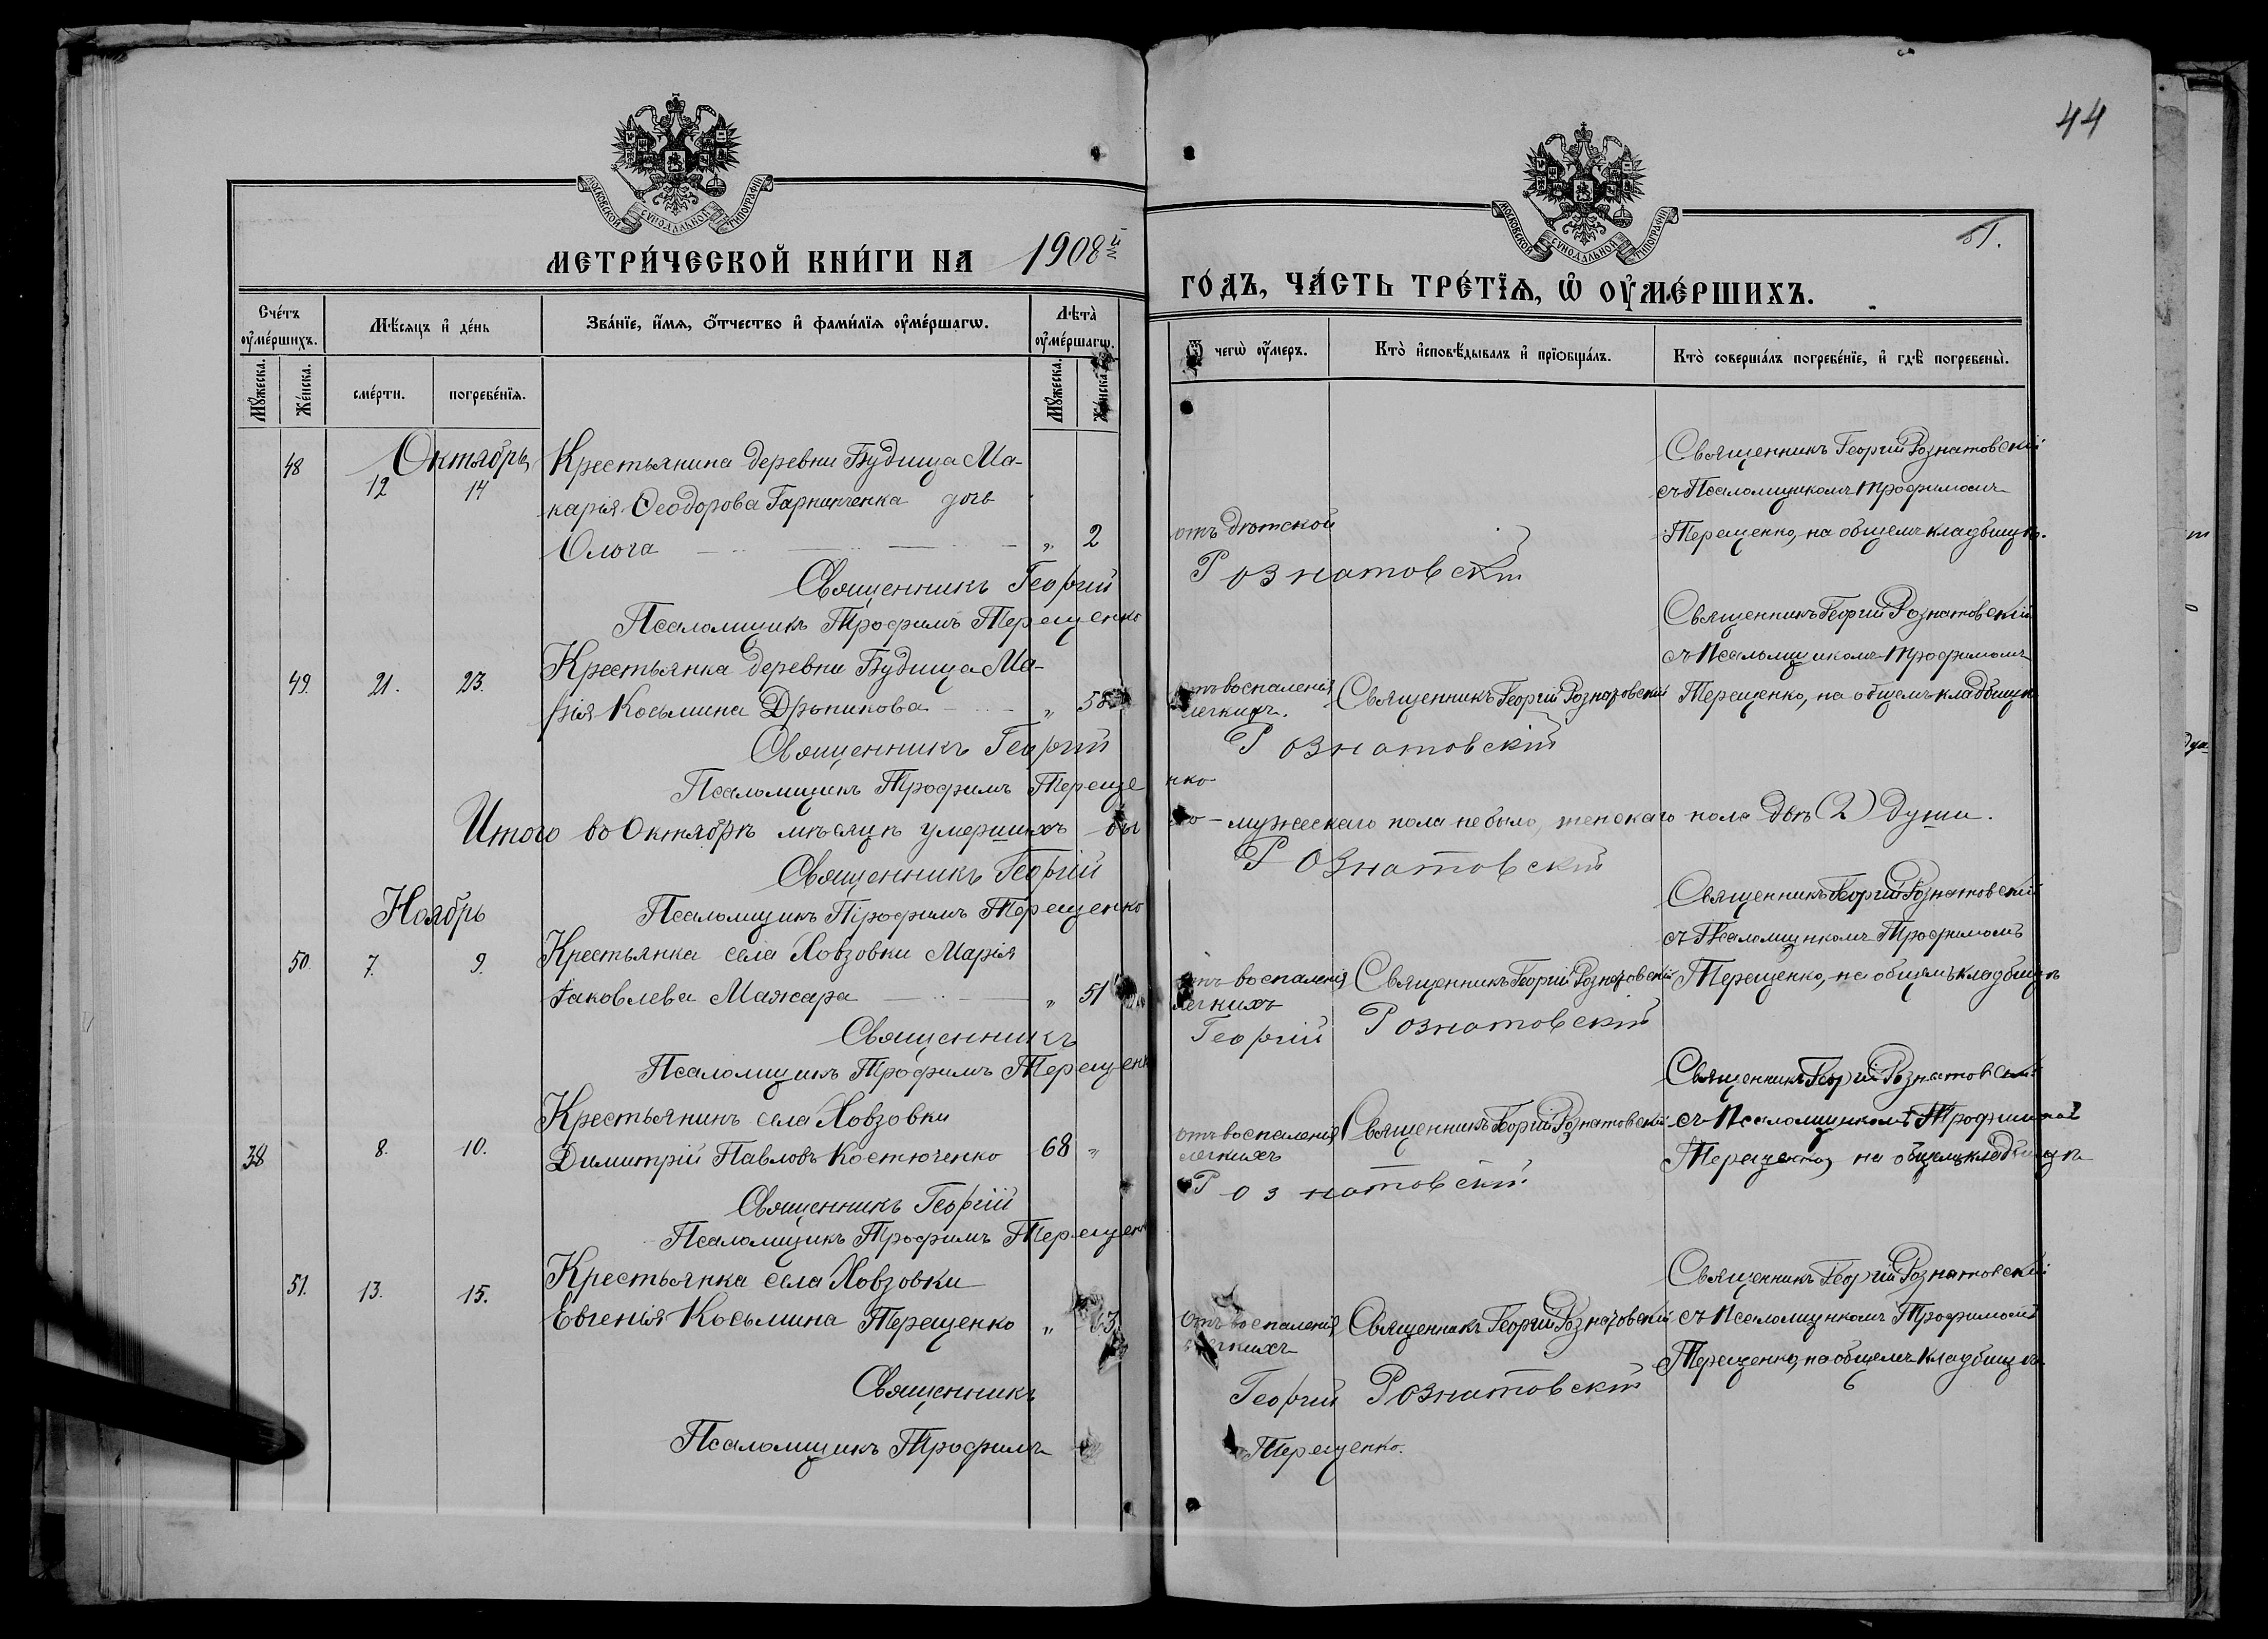 44
МОСКОВСКОЙ СѴНОДАЛЬНОЙ ТИПОГРАФІИ
МОСКОВСКОЙ СѴНОДАЛЬНОЙ ТИПОГРАФІИ
МЕТРИ́ЧЕСКОЙ КНИ́ГИ НА 1908й
ГО́ДЪ, ЧА́СТЬ ТРЕ́ТЇѦ, Ѽ ОУ҆МЕ́РШИХЪ.
51.
Сче́тъ оу҆ме́ршихъ.
Мѣ́сяцъ и҆ де́нь
Зва́нїе, и҆́мѧ, ѻ҆́тчество и҆ фами́лїѧ оу҆ме́ршагѡ.
Лѣ́та̀ оу҆ме́ршагѡ.
Ѿ чегѡ̀ оу҆́меръ.
Кто̀ и҆сповѣ́дывалъ и҆ прїѻбща́лъ.
Кто̀ соверша́лъ погребе́нїе, и҆ гдѣ̀ погребены̀.
Мꙋ́жеска. Же́нска. сме́рти. погребе́нїѧ. Мꙋ́жеска. Же́нска.
Октябрь
48 12 14 Крестьянина деревни Будища Ма-
карія Ѳеодорова дочь
Ольга „ 2 отъ дѣтской
Священникъ Георгій Рознатовскій
съ Псаломщикомъ Трофимомъ
Терещенко, на общемъ кладбищѣ.
Священникъ Георгій Рознатовскій
Псаломщикъ Трофимъ Терещенко
49. 21. 23. Крестьянка деревни Будища Ма-
рія Косьмина Дрыникова „ 58 отъ воспаленія
легкихъ. Священникъ Георгій Рознатовскій
Священникъ Георгій Рознатовскій
съ Псаломщикомъ Трофимомъ
Терещенко, на общемъ кладбищѣ
Священникъ Георгій Рознатовскій
Псаломщикъ Трофимъ Терещенко
Итого въ Октябрѣ мѣсяцѣ умершихъ было – мужескаго пола не было, женскаго пола двѣ (2) души.
Священникъ Георгій Рознатовскій
Псаломщикъ Трофимъ Терещенко
Ноябрь
50. 7. 9. Крестьянка села Ховзовки Марія
Іаковлева Мажара „ 51 отъ воспаленія
легкихъ Священникъ Георгій Рознатовскій
Священникъ Георгій Рознатовскій
съ Псаломщикомъ Трофимомъ
Терещенко, на общемъ кладбищѣ
Священникъ Георгій Рознатовскій
Псаломщикъ Трофимъ Терещенко
38 8. 10. Крестьянинъ села Ховзовки
Димитрій Павловъ Костюченко 68 „ отъ воспаленія
легкихъ Священникъ Георгій Рознатовскій
Священникъ Георгій Рознатовскій
съ Псаломщикомъ Трофимомъ
Терещенко, на общемъ кладбищѣ
Священникъ Георгій Рознатовскій
Псаломщикъ Трофимъ Терещенко
51. 13. 15. Крестьянка села Ховзовки
Евгенія Косьмина Терещенко „ отъ воспаленія
легкихъ Священникъ Георгій Рознатовскій
Священникъ Георгій Рознатовскій
съ Псаломщикомъ Трофимомъ
Терещенко, на общемъ кладбищѣ
Священникъ Георгій Рознатовскій
Псаломщикъ Трофимъ Терещенко.